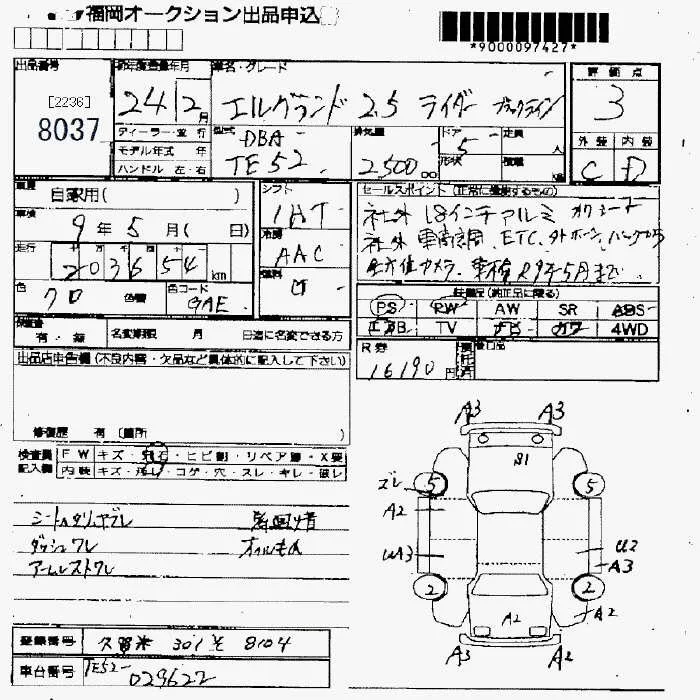 福岡オークション出品申込
*9000097427*
出品番号
[2236]
8037
初年度登録年月
24年2月
車名・グレード
エルグランド 2.5 ライダー ブラックライン
評価点
3
外装 内装
C D
ディーラー・並行
モデル年式 年
ハンドル 左・右
型式
DBA-
TE52
排気量
2,500
ドア 5
形状
定員 人
積載
車歴
自家用( )
車検
9年5月( 日)
走行
203654km
色
クロ
色替
色コード
GAE
シフト
IAT
冷房
AAC
燃料
ガ
セールスポイント (正常に機能するもの)
社外 18インチアルミ
社外 車高調、ETC、
全方位カメラ、車検R9年5月まで
装備品(純正品に限る)
PS RW AW SR ABS
エアB TV ナビ カワ 4WD
有・無
名変期限 月 日迄に名変できる方
R券
16190円
出品店申告欄(不良内容・欠品など具体的に記入して下さい)
修復歴 有(箇所 )
検査員記入欄
FW キズ・飛石・ヒビ割・リペア跡・X要
内装 キズ・汚レ・コゲ・穴・スレ・キレ・破レ
シートスリ、ヤブレ
ダッシュワレ
アームレストワレ
オイルもれ
A3 A3
S1
ズレ 5 5
A2
UA3 U2
A3
2 2
A2 A2
A3 A2
登録番号 久留米 301 そ 8104
車台番号 TE52-029622